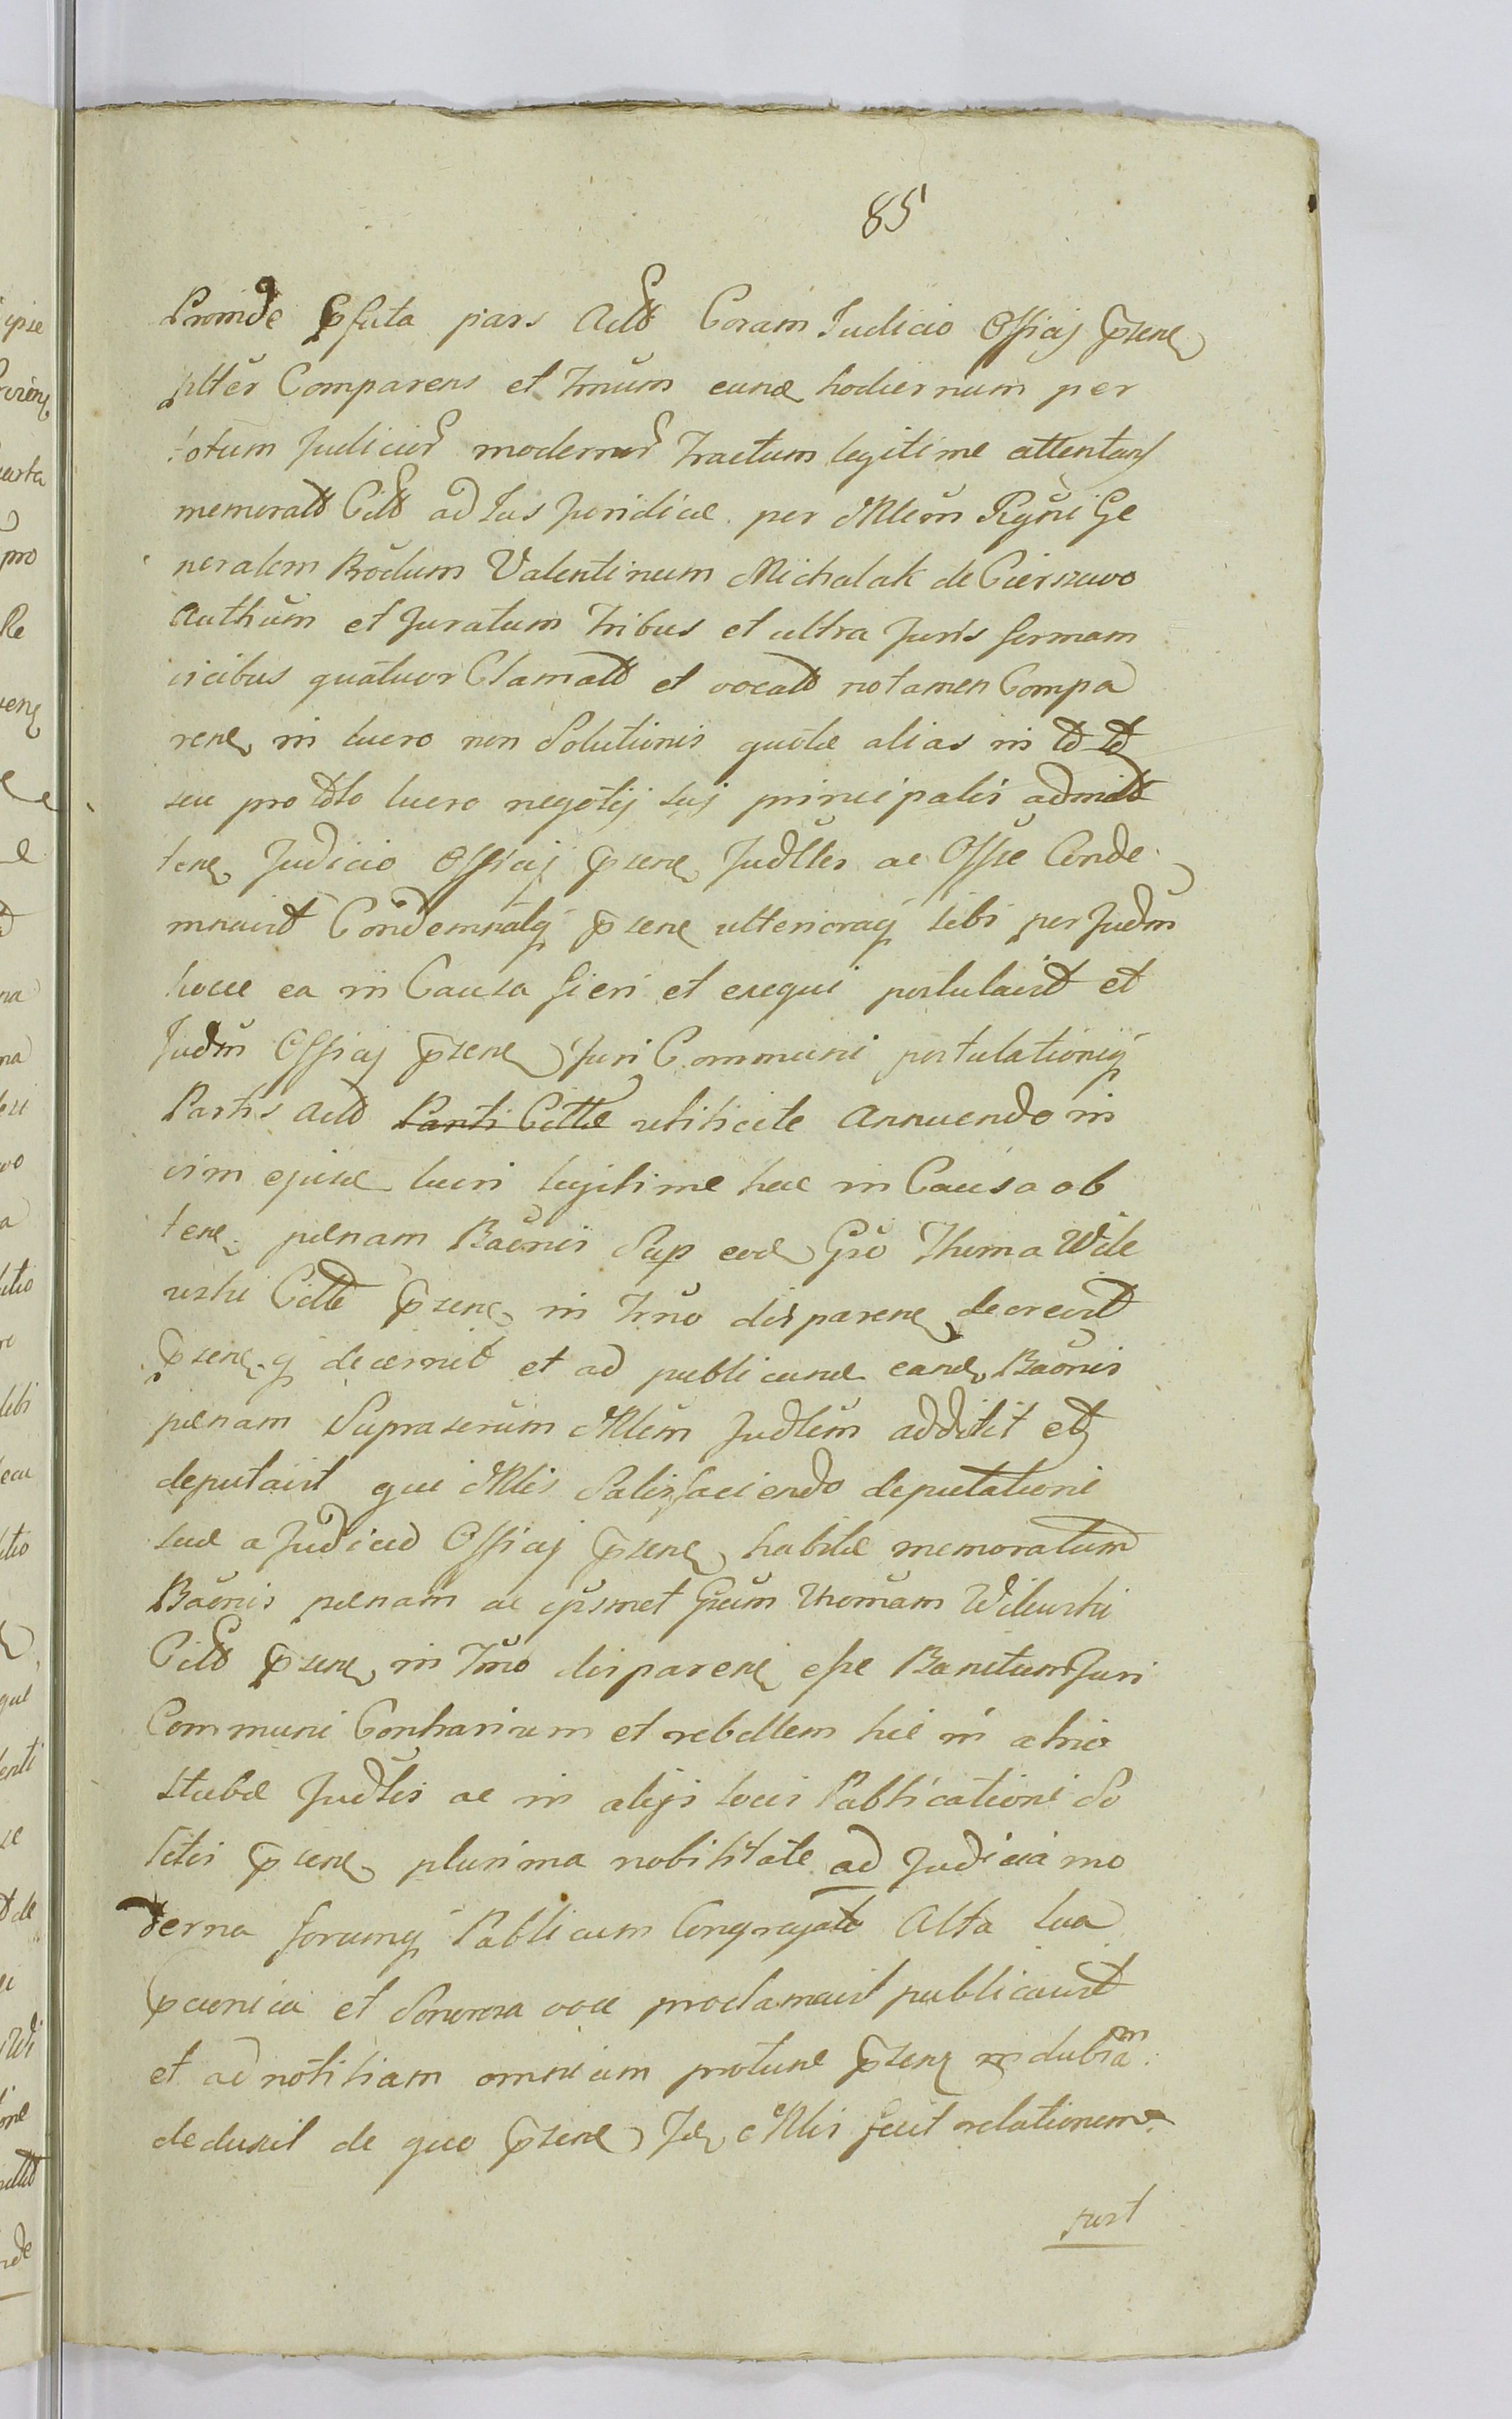 85
Proinde pfata pars Actt Coram Judicio Officij psene
pltter Comparens et Tmum eund hodiernum per
totum Judicior modernor Tractum legitime attentans
memoratt Citt ad Jus Juridice per Mlem Regni Ge
neralem Rodum Valentinum Michalak de Cierszewo
Authum et Juratum Tribus et ultra Juris formam
vicibus quatuor Clamatt et vocatt notamen Compa
rene in lucro non Solutionis quotae alias in tt tt
seu pro ttlo lucro negotij suj principalis admitt
tene Judicio Officij psene Judlter ac Offse Conde
mnavitt Condemnatq psene ulterioraq sibi per Judm
hocce ea in Causa fieri et exequi postulavitt et
Judm Officij psene Juri Communi postulationiq
Partis Actt Parti Cittae utiticite Annuendo in
vim ejusd lucri legitime hac in Causa ob
tene paenam Baonis Sup eod Gso Thoma Wile
wski Citt psene in Tmo disparene decrevitt
pseneq decernit et ad publicand eand Baonis
paenam Suprascrum Mlem Judlem addidit et
deputavit qui Mlis Satisfaciendo deputationi
suae a Judicio Officij psene habitae memoratam
Baonis paenam ac ipsmet Gsum Thomam Wilewski
Citt psene in Tmo disparene esse Banitum Juri
Communi Contrarium et rebellem hic in atrio
stubae Judlis ac in alijs locis Publicationi So
litis psene plurima nobilitate ad Judicia mo
derna forumq Publicum Congregato Alta sua
pconica et Sonorosa voce proclamavit publicavitt
et ad notitiam omnium protunc psene indubiam
deduxit de quo psene Jd Mlis fecit relationem
Post